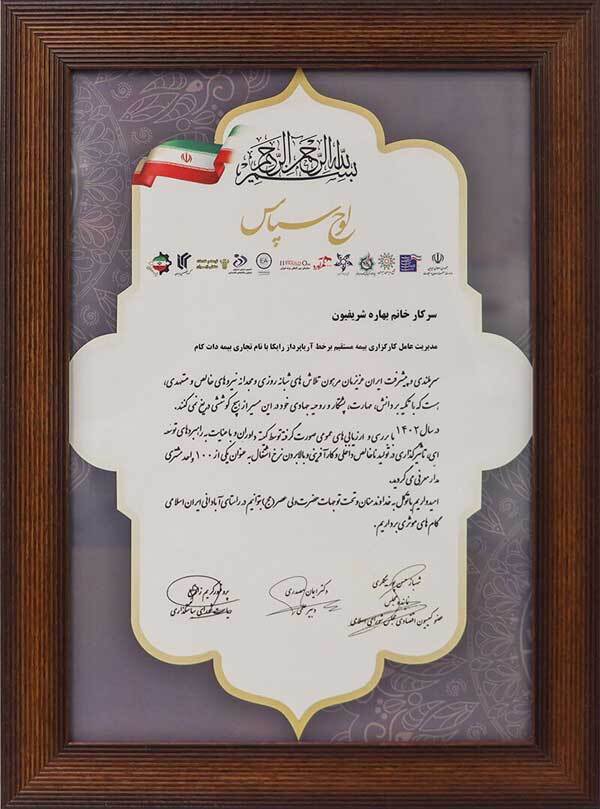 بسم الله الرحمن الرحیم
لوح سپاس
سرکار خانم بهاره شریفیون
مدیریت عامل کارگزاری بیمه مستقیم برخط آریاپرداز رایکا با نام تجاری بیمه دات کام
سربلندی و پیشرفت ایران عزیزمان مرهون تلاش های شبانه روزی و مجدانه نیروهای خالص و متعهدی،
هست که با تکیه بر دانش، مهارت، پشتکار و روحیه جهادی خود در این مسیر از هیچ کوششی دریغ نمی کنند.
در سال ۱۴۰۲ با بررسی و ارزیابی های عمومی صورت گرفته توسط کمیته داوران و با عنایت به راهبردهای توسعه
ای، تاثیرگذاری در تولید ناخالص داخلی و کارآفرینی و بالا بردن نرخ اشتغال به عنوان یکی از ۱۰۰ واحد مشتری
مدار معرفی می گردید.
امیدواریم با توکل به خداوند منان و تحت توجهات حضرت ولی عصر (عج) بتوانیم در راستای آبادانی ایران اسلامی
گام های موثری برداریم.
شهباز حسن پور بیگلری
نماینده مجلس
عضو کمیسیون اقتصادی مجلس شورای اسلامی
دکتر ایمان
دبیر علمی
پروفسور کریم
شورای سیاستگذاری